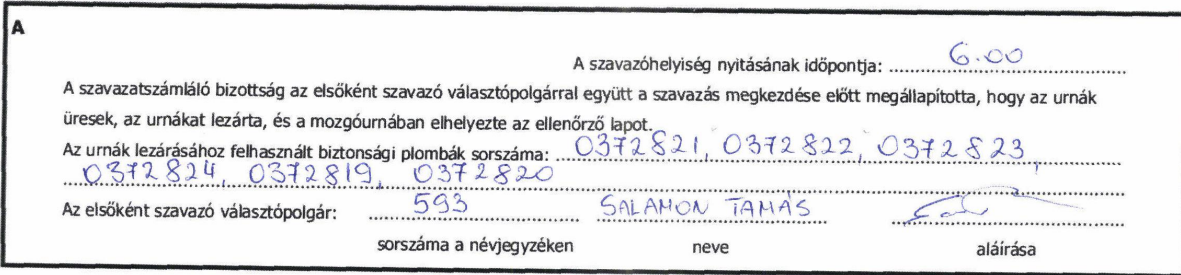 A
A szavazóhelyiség nyitásának időpontja: 6.00
A szavazatszámláló bizottság az elsőként szavazó választópolgárral együtt a szavazás megkezdése előtt megállapította, hogy az urnák
üresek, az urnákat lezárta, és a mozgóurnában elhelyezte az ellenőrző lapot.
Az urnák lezárásához felhasznált biztonsági plombák sorszáma: 0372821, 0372822, 0372823,
0372824, 0372819, 0372820
Az elsőként szavazó választópolgár: 593 SALAMON TAMÁS
sorszáma a névjegyzéken neve aláírása